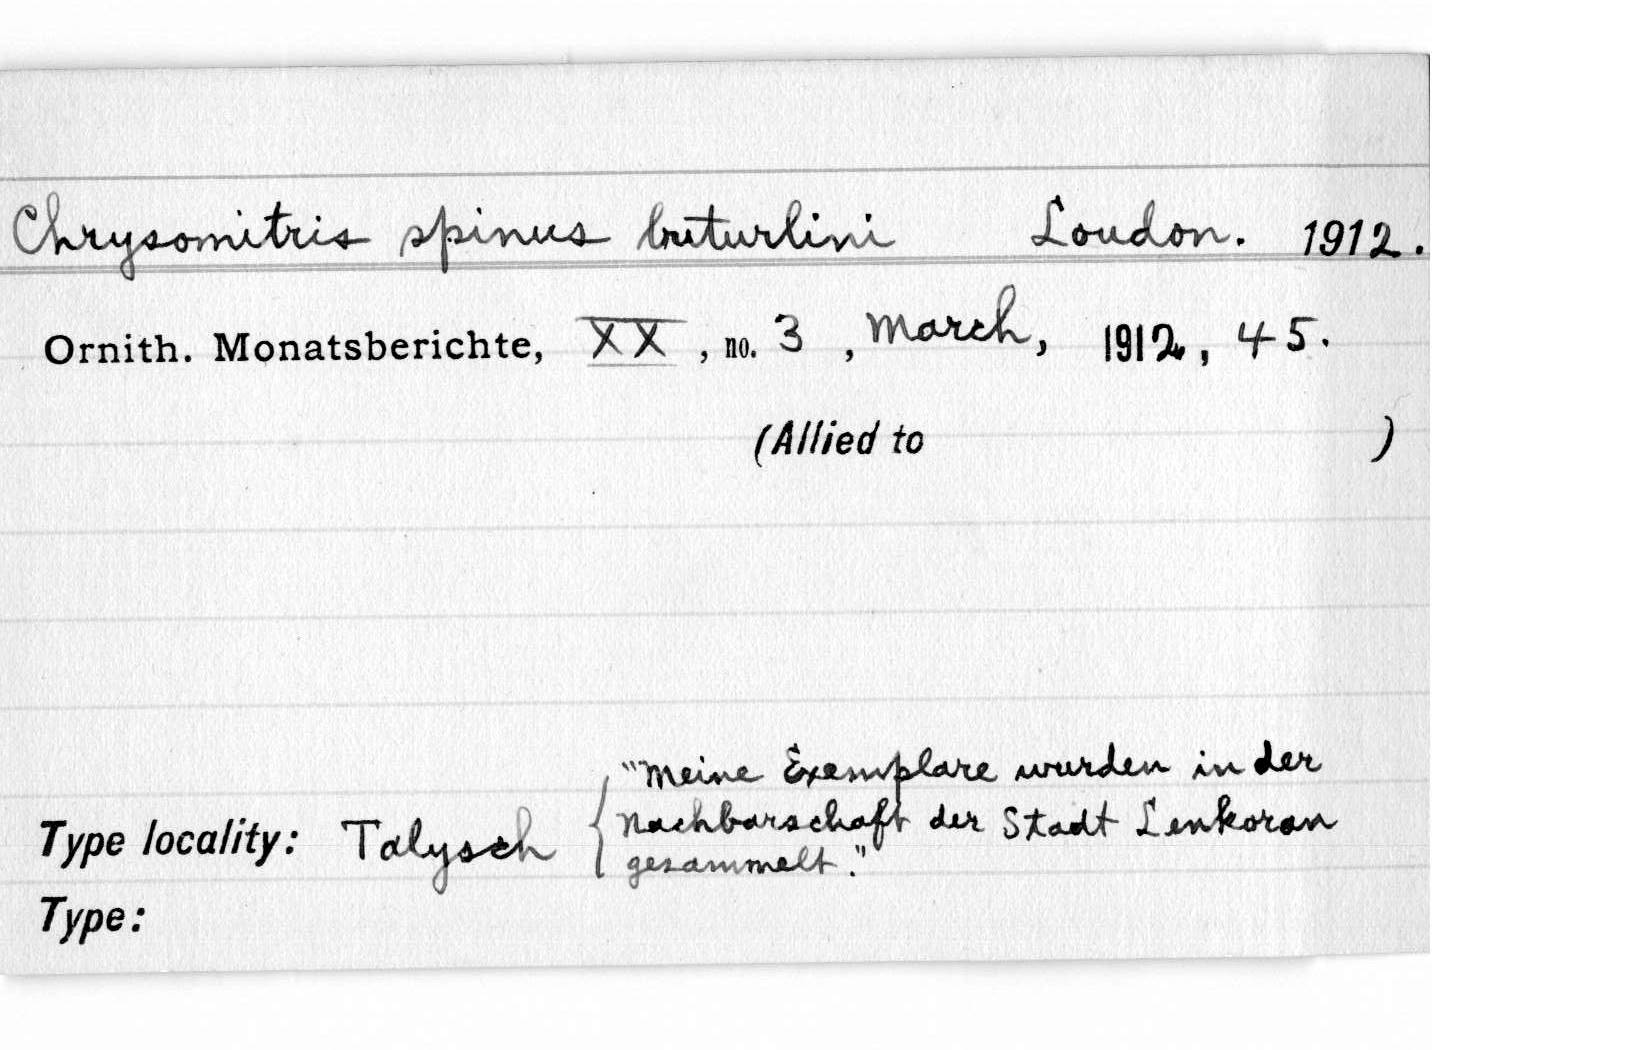 Chrysomitris spinus buturlini Loudon. 1912.
Ornith. Monatsberichte, XX, no. 3, March, 1912, 45.
(Allied to )
"Meine Exemplare wurden in der
Nachbarschaft der Stadt Lenkoran
Type locality: Talysch
gesammelt."
Type: